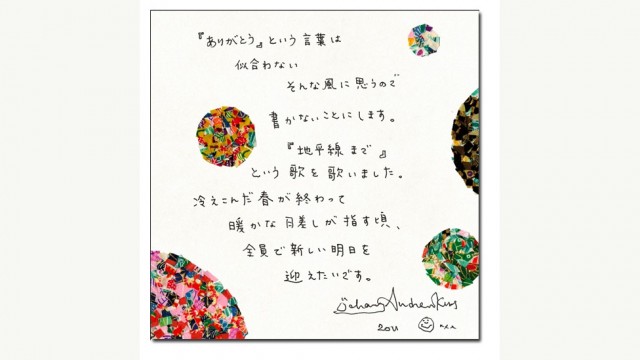 『ありがとう』という言葉は
似合わない
そんな風に思うので
書かないことにします。
『地平線まで』
という歌を歌いました。
冷えこんだ春が終わって
暖かな日差しが指す頃、
全員で新しい明日を
迎えたいです。
2011